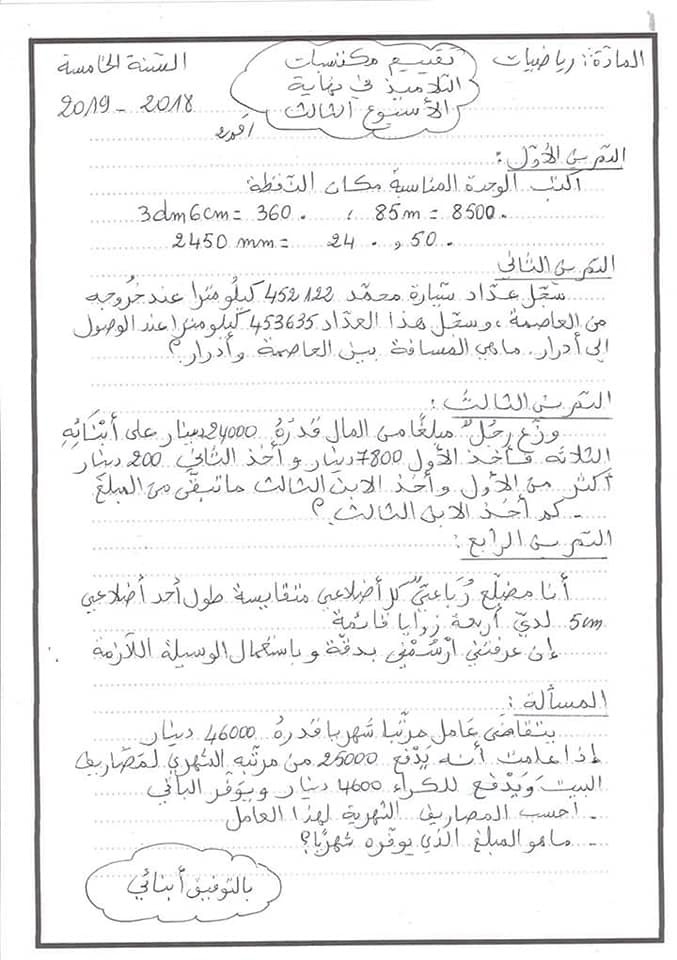 المادة: رياضيات
تقييم مكتسبات
التلاميذ في نهاية
الأسبوع الثالث
السنة الخامسة
2018 - 2019
التمرين الأول:
اكتب الوحدة المناسبة مكان النقطة:
3dm6cm = 360 . ، 85m = 8500 .
2450 mm = 24 . و 50 .
التمرين الثاني
سجّل عدّاد سيّارة محمّد 452122 كيلومترا عند خروجه
من العاصمة، وسجّل هذا العدّاد 453635 كيلومترا عند الوصول
إلى أدرار. ما هي المسافة بين العاصمة وأدرار؟
التمرين الثالث:
وزّع رجُلٌ مبلغًا من المال قدرُهُ 24000 دينار على أبْنَائِهِ
الثلاثة فأخذ الأول 7800 دينار وأخذ الثاني 200 دينار
أكثر من الأول وأخذ الابن الثالث ما تبقّى من المبلغ
- كم أخذ الابن الثالث؟
التمرين الرابع:
أنا مضلّع رُبَاعيّ كل أضلاعي متقايسة طول أحد أضلاعي
5cm لديّ أربعة زوايا قائمة
إن عرفتني ارْسُمْني بدقّة وباستعمال الوسيلة اللّازمة
المسألة:
يتقاضى عامل مرتّبا شهريا قدرهُ 46000 دينار
إذا علمت أنه يَدْفع 25000 من مرتّبه الشهري لمصَاريف
البيت وَيَدْفع للكراء 4600 دينار ويوَفّر الباقي
- احسب المصاريف الشهرية لهذا العامل
- ما هو المبلغ الذي يوفّره شهريًّا؟
بالتوفيق أبنائي